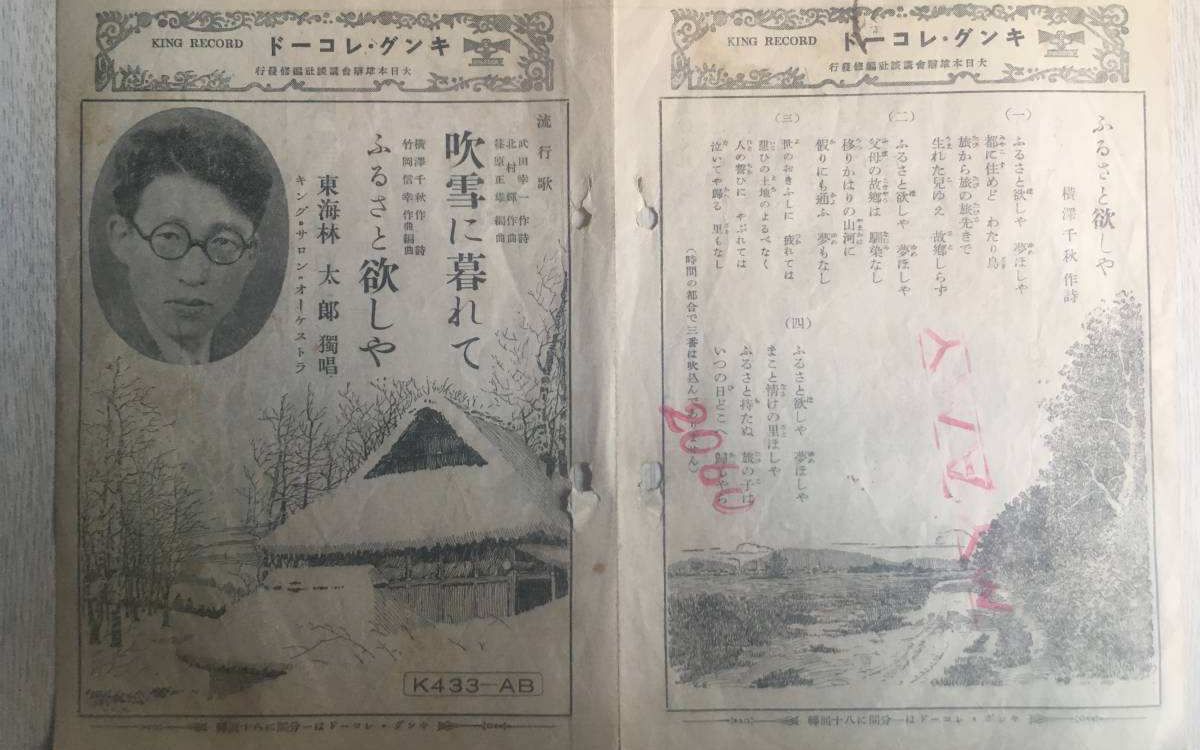 KING RECORD
キング・レコード
大日本雄辯會講談社編修發行
流行歌
武田幸一 作詩
北村輝 作曲
篠原正雄 編曲
吹雪に暮れて
横澤千秋 作詩
竹岡信幸 作曲編曲
ふるさと欲しや
東海林太郎 獨唱
キング・サロン・オーケストラ
K433-AB
KING RECORD
キング・レコード
大日本雄辯會講談社編修發行
ふるさと欲しや
横澤千秋 作詩
(一)
ふるさと欲しや 夢ほしや
都に住めど わたり鳥
旅から旅の旅先きで
生れた兒ゆえ 故鄕しらず
(二)
ふるさと欲しや 夢ほしや
父母の故鄕は 馴染なし
移りかはりの山河に
假りにも通ふ 夢もなし
(三)
世のおきふしに 疲れては
憩ひの土地のよるべなく
人の誓ひに やぶれては
泣いてや歸る 里もなし
(四)
ふるさと欲しや 夢ほしや
まこと情けの里ほしや
ふるさと持たぬ 旅の子は
いつの日どこへ 歸るやら
(時間の都合で三番は吹込んでありません)
2060
キング・レコードは一分間に八十回轉
キング・レコードは一分間に八十回轉